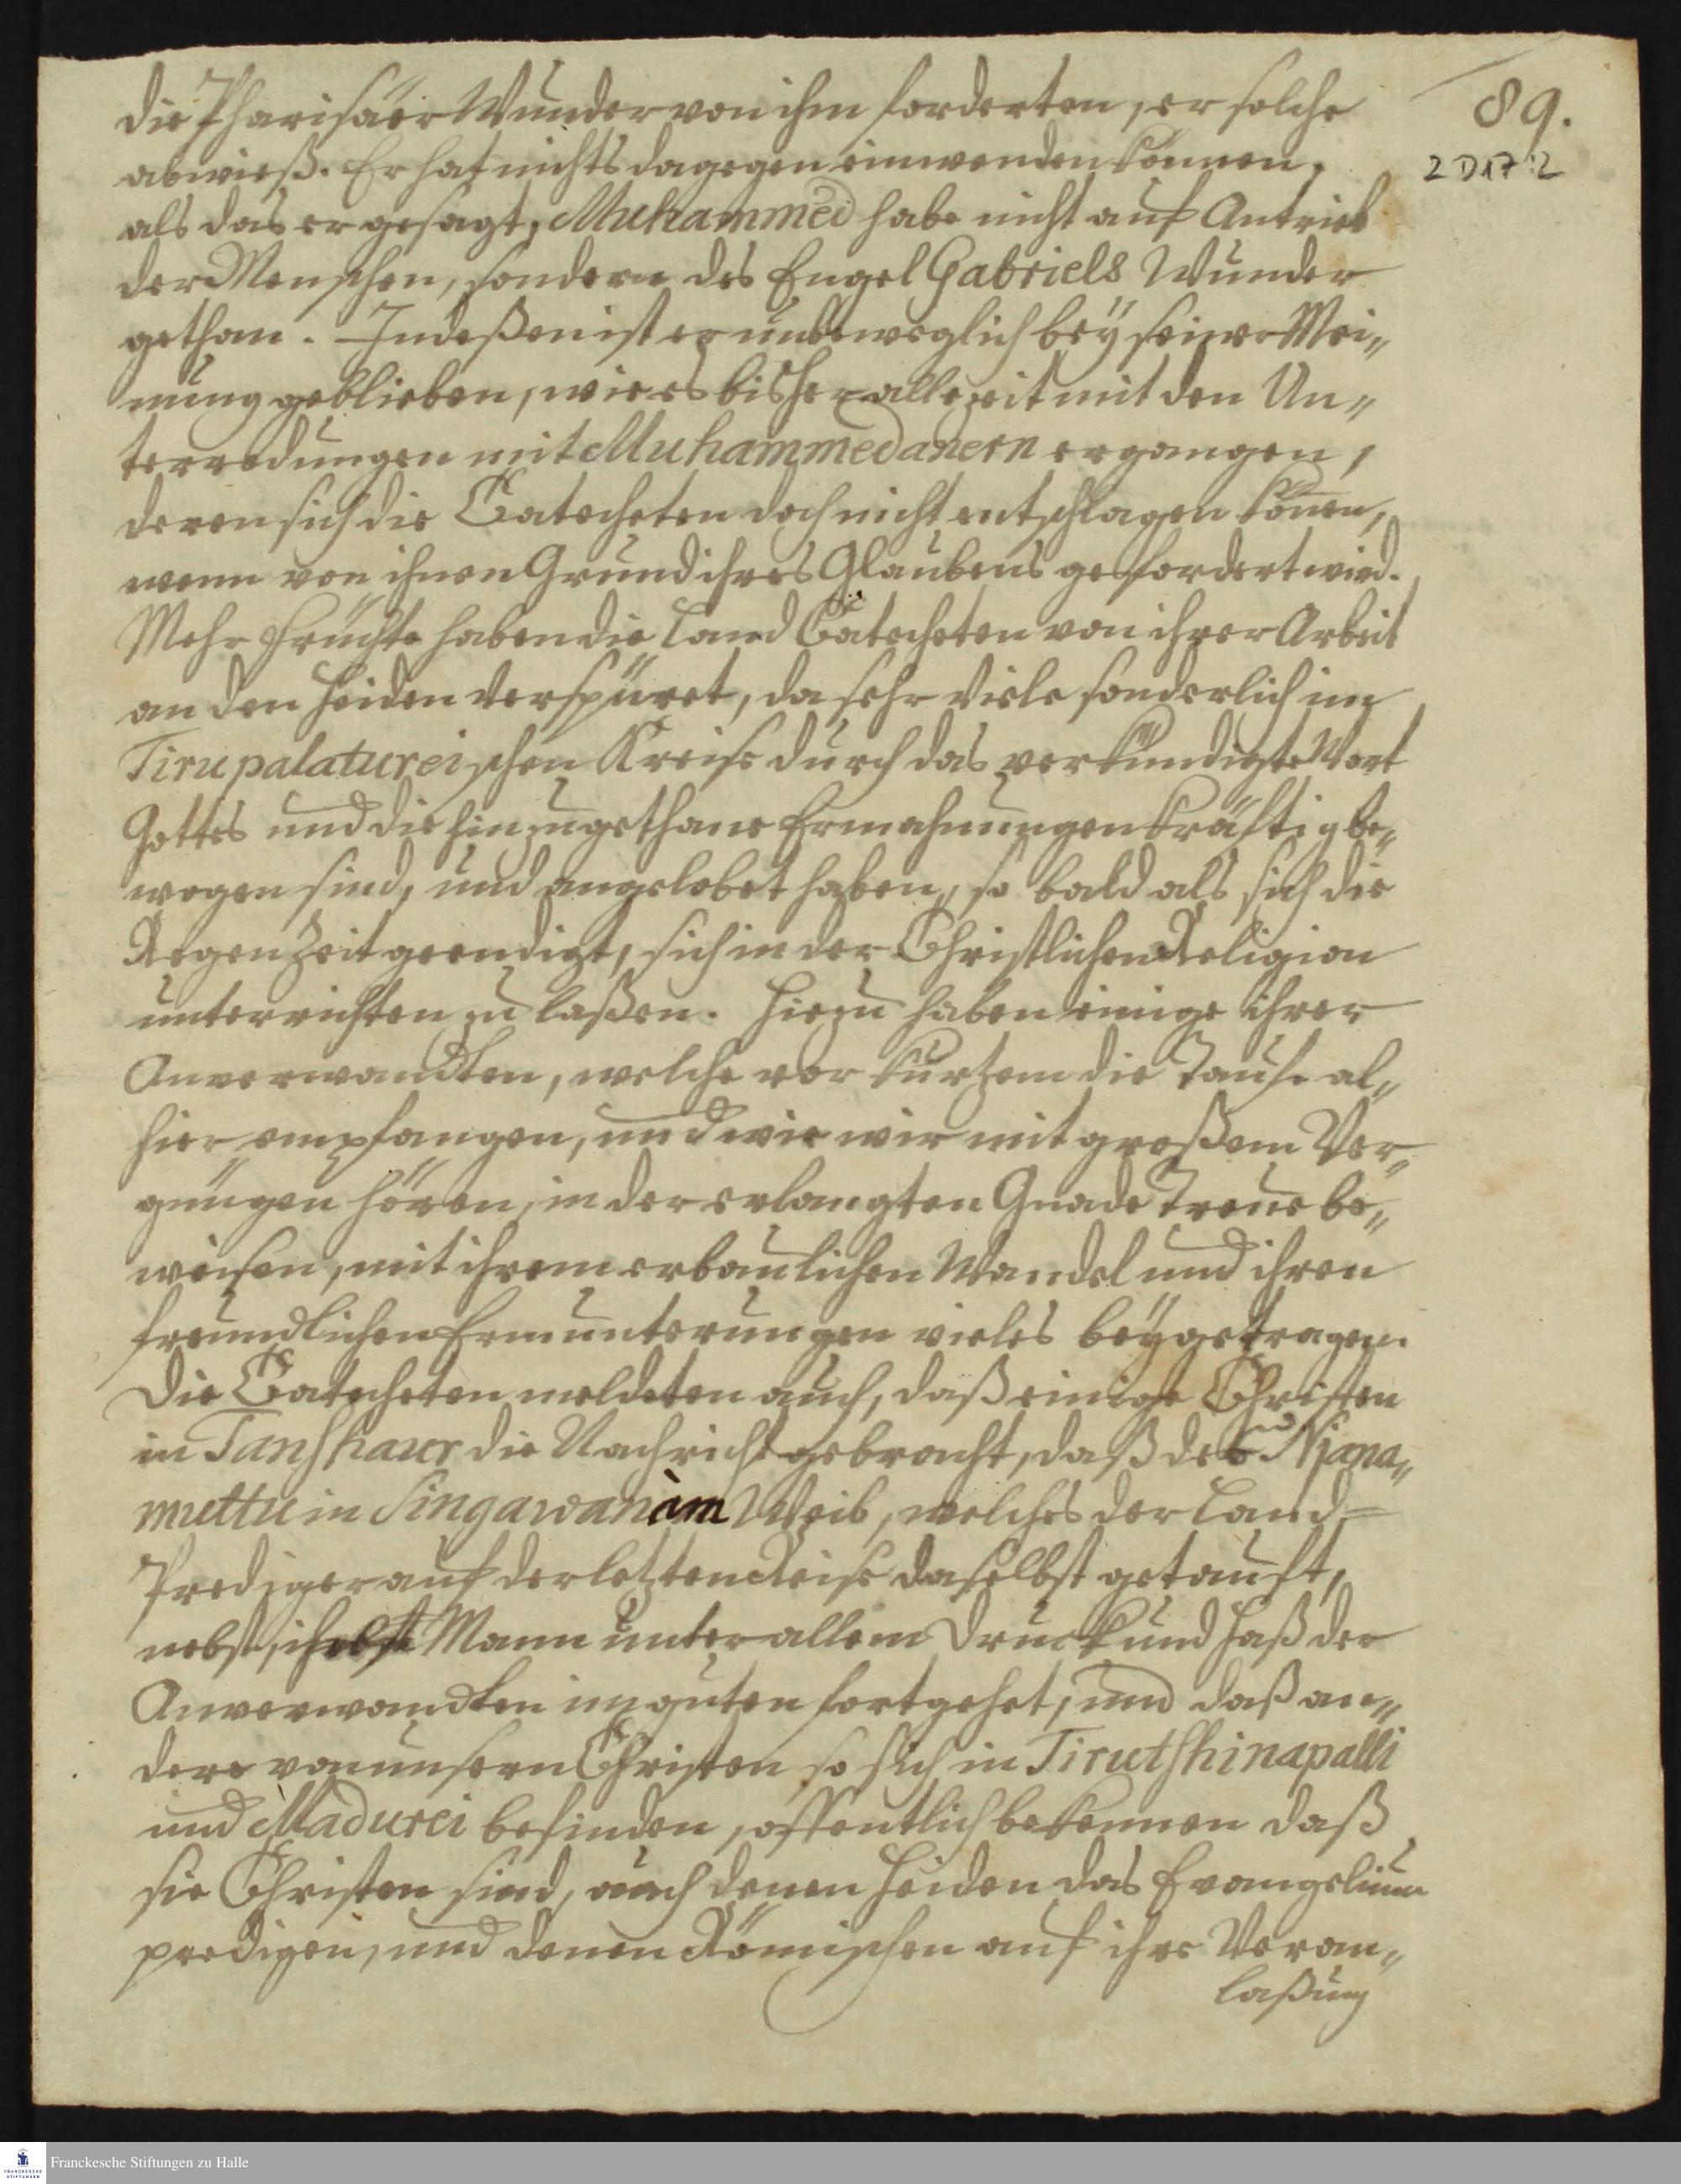 89.
2 D17:2
die Pharisäer Wunder von ihm forderten, er solche
abwieß. Er hat nichts dagegen einwenden können,
als das er gesagt, Muhammed habe nicht auf Antrieb
der Menschen, sondern des Engel Gabriels Wunder
gethan. Indeßen ist er unbeweglich bey seiner Mei„
nung geblieben, wie es bisher allezeit mit den Un„
terredungen mit Muhammedanern ergangen,
deren sich die Catecheten doch nicht entschlagen könen,
wenn von ihnen Grund ihres Glaubens gefordert wird.
Mehr Früchte haben die Land Catecheten von ihrer Arbeit
an den Heiden verspüret, da sehr viele sonderlich im
Tirupalatureischen Kreise durch das verkündigte Wort
Gottes und die hinzugethane Ermahnungen kräftig be„
wogen sind, und angelobet haben, so bald als sich die
Regenzeit geendigt, sich in der Christlichen Religion
unterrichten zu laßen. Hiezu haben einige ihrer
Anverwandten, welche vor kurtzem die Taufe al„
hier empfangen, und wie wir mit großem Ver„
gnügen hören, in der erlangten Gnade Treue be„
weisen, mit ihrem erbaulichen Wandel und ihren
freundlichen Ermunterungen vieles beygetragen.
Die Catecheten meldeten auch, daß einige Christen
in Tanshaur die Nachricht gebracht, daß des Njana„
muttu in Singawanam Weib, welches der Land=
Prediger auf der letzten Reise daselbst getauft,
nebst Mann unter allem Druck und Haß der
Anverwandten im guten fortgehet, und daß an„
dere von unsern Christen so sich in Tirutshinapalli
und Madurei befinden, offentlich bekennen daß
sie Christen sind, auch denen Heiden das Evangelium
predigen, und denen Römischen auf ihre Veran„
laßung
Franckesche Stiftungen zu Halle
FRANCKESCHE STIFTUNGEN